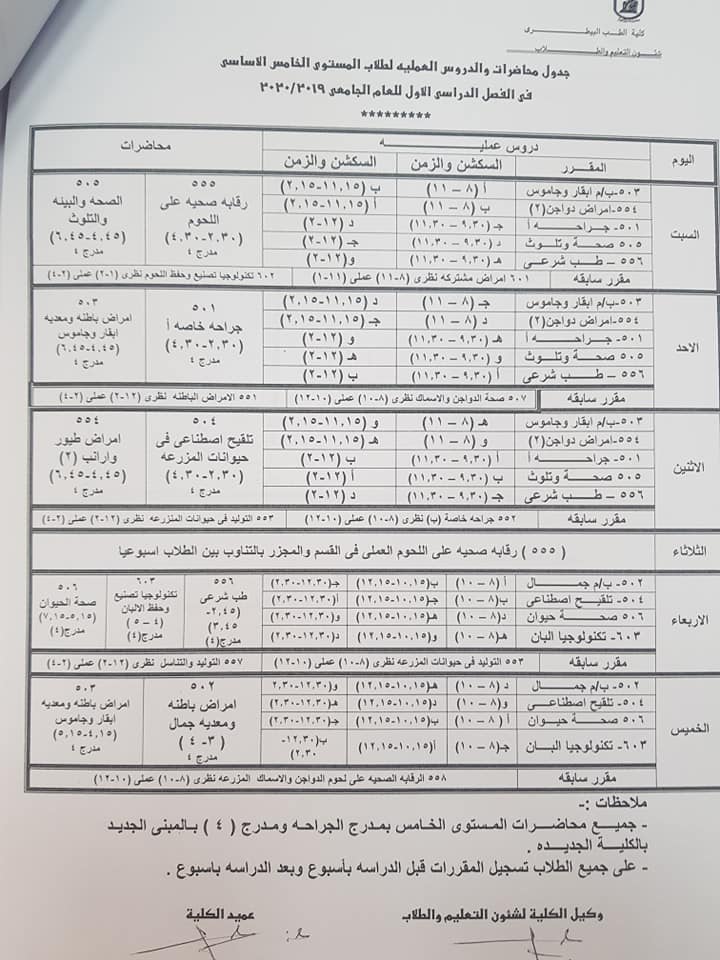 كلية الطب البيطرى
شئون التعليم والطلاب
جدول محاضرات والدروس العمليه لطلاب المستوى الخامس الاساسى
فى الفصل الدراسى الاول للعام الجامعى ٢٠٢٠/٢٠١٩
*********
اليوم دروس عمليه محاضرات
المقرر السكشن والزمن السكشن والزمن
السبت
٥٠٣-ب/م ابقار وجاموس أ (٨ – ١١) ب (١١,١٥-٢,١٥)
٥٥٤-امراض دواجن(٢) ب (٨ – ١١) أ (١١,١٥-٢,١٥)
٥٠١- جراحه أ جـ (٩,٣٠ – ١١,٣٠) د (١٢-٢)
٥٠٥ صحة وتلوث د (٩,٣٠ – ١١,٣٠) جـ (١٢-٢)
٥٥٦ – طب شرعى هـ (٩,٣٠ – ١١,٣٠) و (١٢-٢)
٥٥٥
رقابه صحيه على
اللحوم
(٢,٣٠-٤,٣٠)
مدرج ٤
٥٠٥
الصحه والبيئه
والتلوث
(٤,٤٥-٦,٤٥)
مدرج ٤
مقرر سابقه ٦٠١ امراض مشتركه نظرى (٨-١١) عملى (١١-١) ٦٠٢ تكنولوجيا تصنيع وحفظ اللحوم نظرى (١-٢) عملى (٢-٤)
الاحد
٥٠٣-ب/م ابقار وجاموس جـ (٨ – ١١) د (١١,١٥-٢,١٥)
٥٥٤-امراض دواجن(٢) د (٨ – ١١) جـ (١١,١٥-٢,١٥)
٥٠١- جراحه أ هـ (٩,٣٠ – ١١,٣٠) و (١٢-٢)
٥٠٥ صحة وتلوث و (٩,٣٠ – ١١,٣٠) هـ (١٢-٢)
٥٥٦ – طب شرعى أ (٩,٣٠ – ١١,٣٠) ب (١٢-٢)
٥٠١
جراحه خاصه أ
(٢,٣٠-٤,٣٠)
مدرج ٤
٥٠٣
امراض باطنه ومعديه
ابقار وجاموس
(٤,٤٥-٦,٤٥)
مدرج ٤
مقرر سابقه ٥٠٧ صحة الدواجن والاسماك نظرى (٨-١٠) عملى (١٠-١٢) ٥٥١ الامراض الباطنه نظرى (١٢-٢) عملى (٢-٤)
الاثنين
٥٠٣-ب/م ابقار وجاموس هـ (٨ – ١١) و (١١,١٥-٢,١٥)
٥٥٤-امراض دواجن(٢) و (٨ – ١١) هـ (١١,١٥-٢,١٥)
٥٠١- جراحه أ أ (٩,٣٠ – ١١,٣٠) ب (١٢-٢)
٥٠٥ صحة وتلوث ب (٩,٣٠ – ١١,٣٠) أ (١٢-٢)
٥٥٦ – طب شرعى جـ (٩,٣٠ – ١١,٣٠) د (١٢-٢)
٥٠٤
تلقيح اصطناعى فى
حيوانات المزرعه
(٢,٣٠-٤,٣٠)
مدرج ٤
٥٥٤
امراض طيور
وارانب (٢)
(٤,٤٥-٦,٤٥)
مدرج ٤
مقرر سابقه ٥٥٢ جراحه خاصة (ب) نظرى (٨-١٠) عملى (١٠-١٢) ٥٥٣ التوليد فى حيوانات المزرعه نظرى (١٢-٢) عملى (٢-٤)
الثلاثاء ( ٥٥٥ ) رقابه صحيه على اللحوم العملى فى القسم والمجزر بالتناوب بين الطلاب اسبوعيا
الاربعاء
٥٠٢-ب/م جمال أ (٨ – ١٠) ب(١٠,١٥-١٢,١٥) جـ(١٢,٣٠-٢,٣٠)
٥٠٤- تلقيح اصطناعى ب(٨ – ١٠) جـ(١٠,١٥-١٢,١٥) أ(١٢,٣٠-٢,٣٠)
٥٠٦ صحة حيوان د(٨ – ١٠) هـ(١٠,١٥-١٢,١٥) و(١٢,٣٠-٢,٣٠)
٦٠٣- تكنولوجيا البان هـ(٨ – ١٠) و(١٠,١٥-١٢,١٥) د(١٢,٣٠-٢,٣٠)
٥٥٦
طب شرعى
(٢,٤٥-
٣,٤٥
مدرج(٤)
٦٠٣
تكنولوجيا تصنيع
وحفظ الالبان
(٤ – ٥)
مدرج(٤)
٥٠٦
صحة الحيوان
(٥,١٥-٧,١٥)
مدرج(٤)
مقرر سابقه ٥٥٣ التوليد فى حيوانات المزرعه نظرى (٨-١٠) عملى (١٠-١٢) ٥٥٧ التوليد والتناسل نظرى (١٢-٢) عملى (٢-٤)
الخميس
٥٠٢-ب/م جمال د(٨ – ١٠) هـ(١٠,١٥-١٢,١٥) و(١٢,٣٠-٢,٣٠
٥٠٤- تلقيح اصطناعى و(٨ – ١٠) د(١٠,١٥-١٢,١٥) هـ(١٢,٣٠-٢,٣٠)
٥٠٦ صحة حيوان أ (٨ – ١٠) ب(١٠,١٥-١٢,١٥) جـ(١٢,٣٠-٢,٣٠)
٦٠٣- تكنولوجيا البان جـ(٨ – ١٠) أ(١٠,١٥-١٢,١٥) ب(١٢,٣٠-
٢,٣٠)
٥٠٢
امراض باطنه
ومعديه جمال
(٣- ٤ )
مدرج ٤
٥٠٣
امراض باطنه ومعديه
ابقار وجاموس
(٤,١٥-٥,١٥)
مدرج ٤
مقرر سابقه ٥٥٨ الرقابه الصحيه على لحوم الدواجن والاسماك المزرعه نظرى (٨-١٠) عملى (١٠-١٢)
ملاحظات :-
- جميع محاضرات المستوى الخامس بمدرج الجراحه ومدرج ( ٤ ) بالمبنى الجديد
بالكلية الجديده .
- على جميع الطلاب تسجيل المقررات قبل الدراسه بأسبوع وبعد الدراسه باسبوع .
وكيل الكلية لشئون التعليم والطلاب عميد الكلية